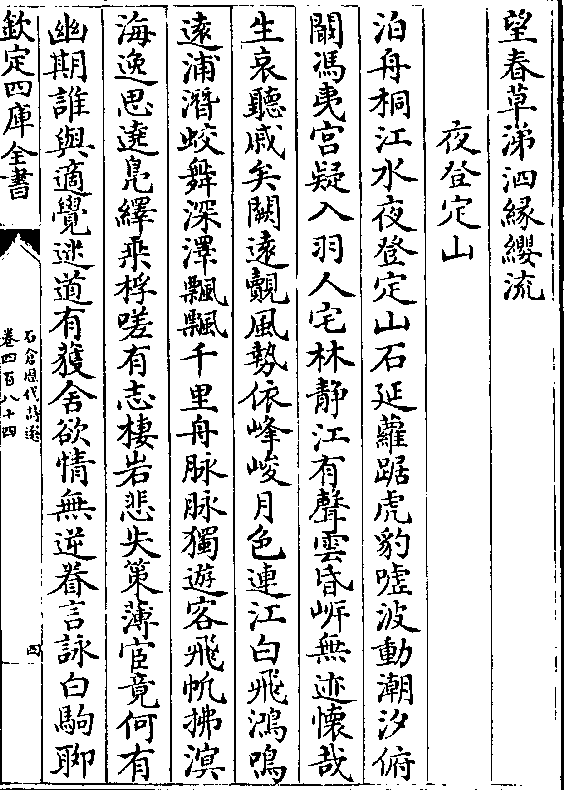 望春草涕泗縁纓流
夜登定山
泊舟桐江水夜登定山石延蘿踞虎豹嘘波動潮汐俯
闞馮夷宮疑入羽人宅林靜江有聲雲昏岍無迹懐哉
生哀聽戚矣闕遠覿風勢依峰峻月色連江白飛鴻鳴
逺浦潛蛟舞深澤飄飄千里舟脉脉獨遊客飛帆拂溟
海逸思遶鳬繹乗桴嗟有志棲岩悲失策薄宦竟何有
幽期誰與適覺迷道有獲舍欲情無逆眷言詠白駒聊
欽定四庫全書
石倉歴代詩選
卷四百八十四
四